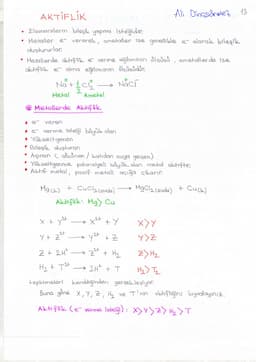 AKTİFLİK
13
• Elementlerin bileşik yapma isteğidir.
• Metaller e⁻ vererek, ametaller ise genellikle e⁻ alarak bileşik
oluştururlar.
• Metallerde aktiflik e⁻ verme eğiliminin ölçüsü, ametallerde ise
aktiflik e⁻ alma eğiliminin ölçüsüdür.
Na + ½ Cl₂ → Na⁺Cl⁻
Metal Ametal
Metallerde Aktiflik
• e⁻ veren
• e⁻ verme isteği büyük olan
• Yükseltgenen
• Bileşik oluşturan
• Aşınan (çözünen / katıdan suya geçen)
• Yükseltgenme potansiyeli büyük olan metal aktiftir.
• Aktif metal, pasif metali açığa çıkarır.
Mg(k) + CuCl₂(suda) → MgCl₂(suda) + Cu(k)
Aktiflik: Mg > Cu
X + Y²⁺ → X²⁺ + Y X>Y
Y + Z²⁺ → Y²⁺ + Z Y>Z
Z + 2H⁺ → Z²⁺ + H₂ Z>H₂
H₂ + T²⁺ → 2H⁺ + T H₂>T
tepkimeleri kendiliğinden gerçekleşiyor.
Buna göre X, Y, Z, H₂ ve T'nin aktifliğini kıyaslayınız.
Aktiflik (e⁻ verme isteği): X>Y>Z>H₂>T